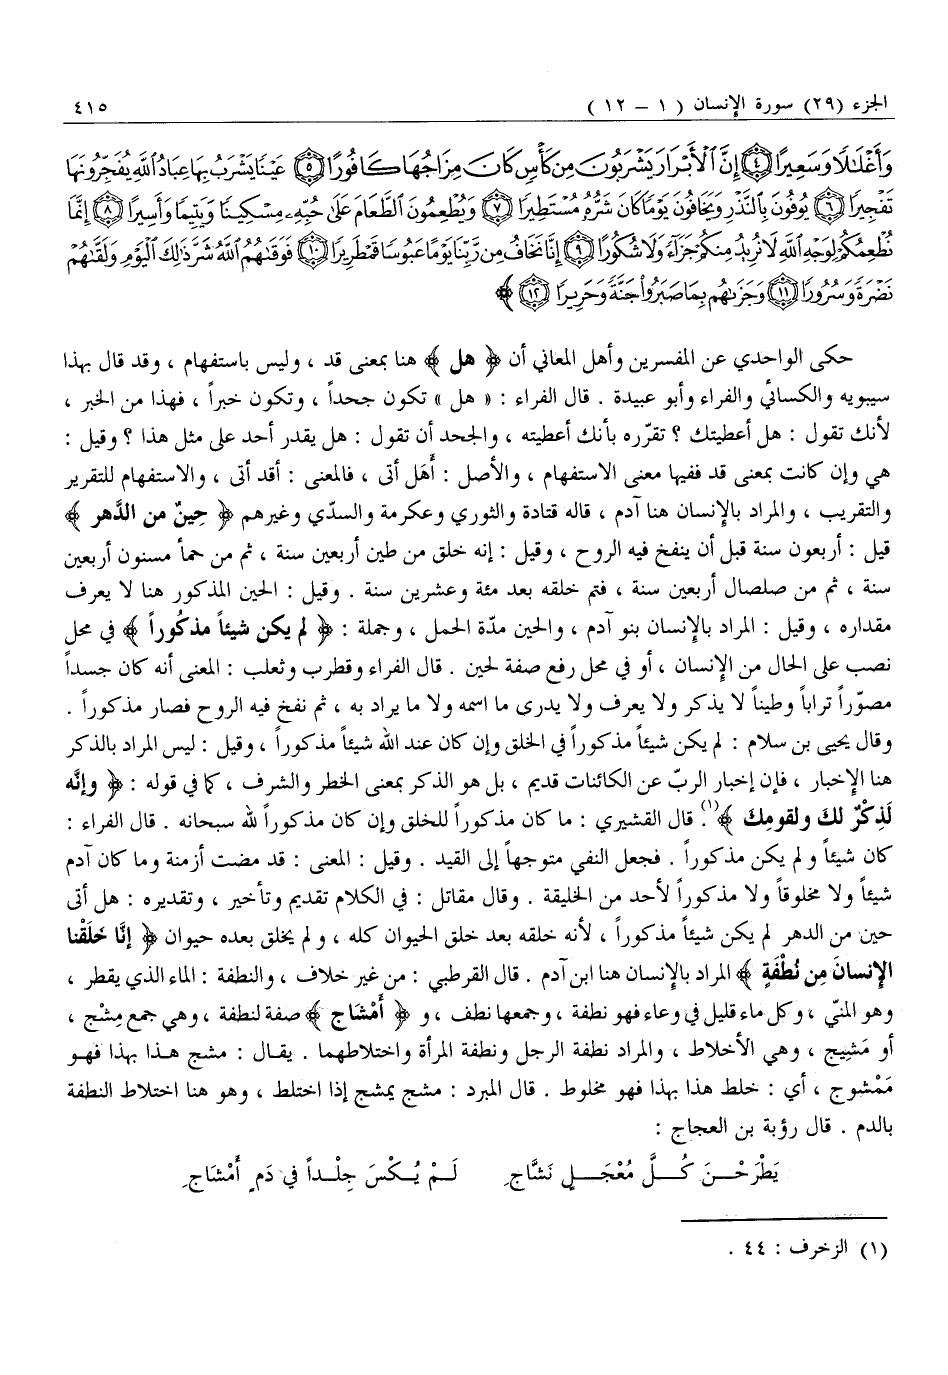 الجزء (٢٩) سورة الإنسان ( ١ - ١٢ ) ٤١٥
وَأَغْلَٰلًا وَسَعِيرًا ٤ إِنَّ ٱلْأَبْرَارَ يَشْرَبُونَ مِن كَأْسٍ كَانَ مِزَاجُهَا كَافُورًا ٥ عَيْنًا يَشْرَبُ بِهَا عِبَادُ ٱللَّهِ يُفَجِّرُونَهَا
تَفْجِيرًا ٦ يُوفُونَ بِٱلنَّذْرِ وَيَخَافُونَ يَوْمًا كَانَ شَرُّهُۥ مُسْتَطِيرًا ٧ وَيُطْعِمُونَ ٱلطَّعَامَ عَلَىٰ حُبِّهِۦ مِسْكِينًا وَيَتِيمًا وَأَسِيرًا ٨ إِنَّمَا
نُطْعِمُكُمْ لِوَجْهِ ٱللَّهِ لَا نُرِيدُ مِنكُمْ جَزَآءً وَلَا شُكُورًا ٩ إِنَّا نَخَافُ مِن رَّبِّنَا يَوْمًا عَبُوسًا قَمْطَرِيرًا ١٠ فَوَقَىٰهُمُ ٱللَّهُ شَرَّ ذَٰلِكَ ٱلْيَوْمِ وَلَقَّىٰهُمْ
نَضْرَةً وَسُرُورًا ١١ وَجَزَىٰهُم بِمَا صَبَرُوا۟ جَنَّةً وَحَرِيرًا ١٢ ﴾
حكى الواحدي عن المفسرين وأهل المعاني أن ﴿ هل ﴾ هنا بمعنى قد ، وليس باستفهام ، وقد قال بهذا
سيبويه والكسائي والفراء وأبو عبيدة . قال الفراء : « هل » تكون جحداً ، وتكون خبراً ، فهذا من الخبر ،
لأنك تقول : هل أعطيتك ؟ تقرّره بأنك أعطيته ، والجحد أن تقول : هل يقدر أحد على مثل هذا ؟ وقيل :
هي وإن كانت بمعنى قد ففيها معنى الاستفهام ، والأصل : أَهَل أتى ، فالمعنى : أقد أتى ، والاستفهام للتقرير
والتقريب ، والمراد بالإنسان هنا آدم ، قاله قتادة والثوري وعكرمة والسدّي وغيرهم ﴿ حِينٌ من الدَّهر ﴾
قيل : أربعون سنة قبل أن ينفخ فيه الروح ، وقيل : إنه خلق من طين أربعين سنة ، ثم من حمأ مسنون أربعين
سنة ، ثم من صلصال أربعين سنة ، فتم خلقه بعد مئة وعشرين سنة . وقيل : الحين المذكور هنا لا يعرف
مقداره ، وقيل : المراد بالإنسان بنو آدم ، والحين مدّة الحمل ، وجملة : ﴿ لم يكن شيئاً مذكُوراً ﴾ في محل
نصب على الحال من الإنسان ، أو في محل رفع صفة لحين . قال الفراء وقطرب وثعلب : المعنى أنه كان جسداً
مصوّراً تراباً وطيناً لا يذكر ولا يعرف ولا يدرى ما اسمه ولا ما يراد به ، ثم نفخ فيه الروح فصار مذكوراً .
وقال يحيى بن سلام : لم يكن شيئاً مذكوراً في الخلق وإن كان عند الله شيئاً مذكوراً ، وقيل : ليس المراد بالذكر
هنا الإخبار ، فإن إخبار الربّ عن الكائنات قديم ، بل هو الذكر بمعنى الخطر والشرف ، كما في قوله : ﴿ وإنَّه
لَذِكْرٌ لكَ ولقومِك ﴾(١). قال القشيري : ما كان مذكوراً للخلق وإن كان مذكوراً لله سبحانه . قال الفراء :
كان شيئاً ولم يكن مذكوراً . فجعل النفي متوجهاً إلى القيد . وقيل : المعنى : قد مضت أزمنة وما كان آدم
شيئاً ولا مخلوقاً ولا مذكوراً لأحد من الخليقة . وقال مقاتل : في الكلام تقديم وتأخير ، وتقديره : هل أتى
حين من الدهر لم يكن شيئاً مذكوراً ، لأنه خلقه بعد خلق الحيوان كله ، ولم يخلق بعده حيوان ﴿ إنَّا خَلَقْنا
الإنسانَ مِن نُطْفَةٍ ﴾ المراد بالإنسان هنا ابن آدم . قال القرطبي : من غير خلاف ، والنطفة : الماء الذي يقطر ،
وهو المنّي ، وكل ماء قليل في وعاء فهو نطفة ، وجمعها نطف ، و ﴿ أمْشَاج ﴾ صفة لنطفة ، وهي جمع مِشْج ،
أو مَشِيج ، وهي الأخلاط ، والمراد نطفة الرجل ونطفة المرأة واختلاطهما . يقال : مشج هذا بهذا فهو
مَمْشوج ، أي : خلط هذا بهذا فهو مخلوط . قال المبرد : مشج يمشج إذا اختلط ، وهو هنا اختلاط النطفة
بالدم . قال رؤبة بن العجاج :
يَطْرَحْنَ كُلَّ مُعْجَلٍ نَشَّاجِ لَمْ يُكْسَ جِلْداً في دَمٍ أَمْشَاجِ
(١) الزخرف : ٤٤ .